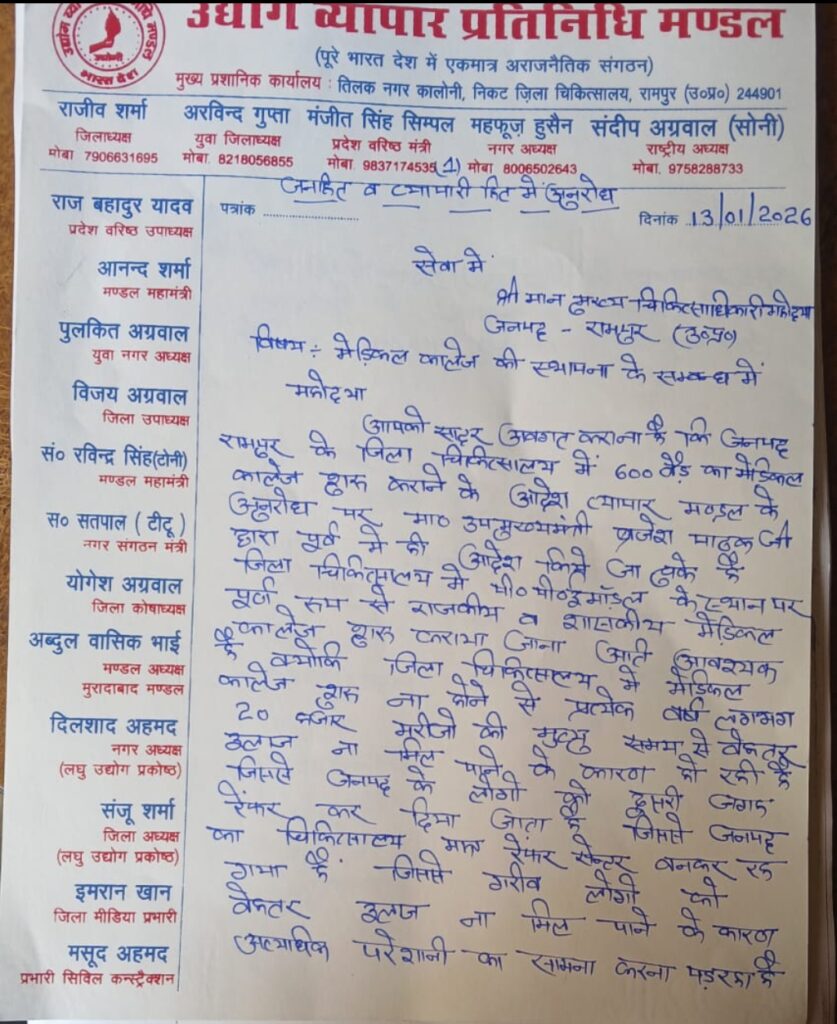 उद्योग व्यापार प्रतिनिधि मण्डल
(पूरे भारत देश में एकमात्र अराजनैतिक संगठन)
मुख्य प्रशानिक कार्यालय : तिलक नगर कालोनी, निकट ज़िला चिकित्सालय, रामपुर (उ०प्र०) 244901
राजीव शर्मा अरविन्द गुप्ता मंजीत सिंह सिम्पल महफूज़ हुसैन संदीप अग्रवाल (सोनी)
जिलाध्यक्ष युवा जिलाध्यक्ष प्रदेश वरिष्ठ मंत्री नगर अध्यक्ष राष्ट्रीय अध्यक्ष
मोबा 7906631695 मोबा. 8218056855 मोबा. 9837174535 (1) मोबा. 8006502643 मोबा. 9758288733
जनहित व व्यापारी हित में अनुरोध
पत्रांक
दिनांक 13/01/2026
राज बहादुर यादव
प्रदेश वरिष्ठ उपाध्यक्ष
आनन्द शर्मा
मण्डल महामंत्री
पुलकित अग्रवाल
युवा नगर अध्यक्ष
विजय अग्रवाल
जिला उपाध्यक्ष
सं० रविन्द्र सिंह(टोनी)
मण्डल महामंत्री
स० सतपाल ( टीटू )
नगर संगठन मंत्री
योगेश अग्रवाल
जिला कोषाध्यक्ष
अब्दुल वासिक भाई
मण्डल अध्यक्ष
मुरादाबाद मण्डल
दिलशाद अहमद
नगर अध्यक्ष
(लघु उद्योग प्रकोष्ठ)
संजू शर्मा
जिला अध्यक्ष
(लघु उद्योग प्रकोष्ठ)
इमरान खान
जिला मीडिया प्रभारी
मसूद अहमद
प्रभारी सिविल कन्स्ट्रैक्शन
सेवा में
श्री मान मुख्य चिकित्साधिकारी महोदया
जनपद - रामपुर (उ०प्र०)
विषय : मेडिकल कालेज की स्थापना के सम्बन्ध में
महोदया
आपको सादर अवगत कराना है कि जनपद
रामपुर के जिला चिकित्सालय में 600 बैड का मेडिकल
कालेज शुरू कराने के आदेश व्यापार मण्डल के
अनुरोध पर मा० उपमुख्यमंत्री ब्रजेश पाठक जी
द्वारा पूर्व में ही आदेश किये जा चुके हैं
जिला चिकित्सालय में पी०पी०ई मॉडल के स्थान पर
पूर्ण रूप से राजकीय व शासकीय मेडिकल
कालेज शुरू कराया जाना अति आवश्यक
है क्योंकि जिला चिकित्सालय में मेडिकल
कालेज शुरू ना होने से प्रत्येक वर्ष लगभग
20 हजार मरीजो की मृत्यु समय से बेहतर
इलाज ना मिल पाने के कारण हो रही है
जिससे जनपद के लोगो को दूसरी जगह
रेफर कर दिया जाता है जिससे जनपद
का चिकित्सालय मात्र रेफर सेन्टर बनकर रह
गया है जिससे गरीब लोगों को
बेहतर इलाज ना मिल पाने के कारण
अत्याधिक परेशानी का सामना करना पड़ रहा है